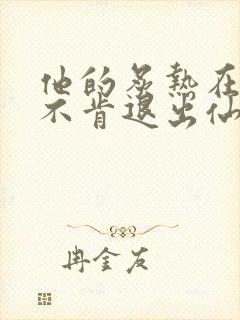 他的炙热在
不肯退出仙
冉金友